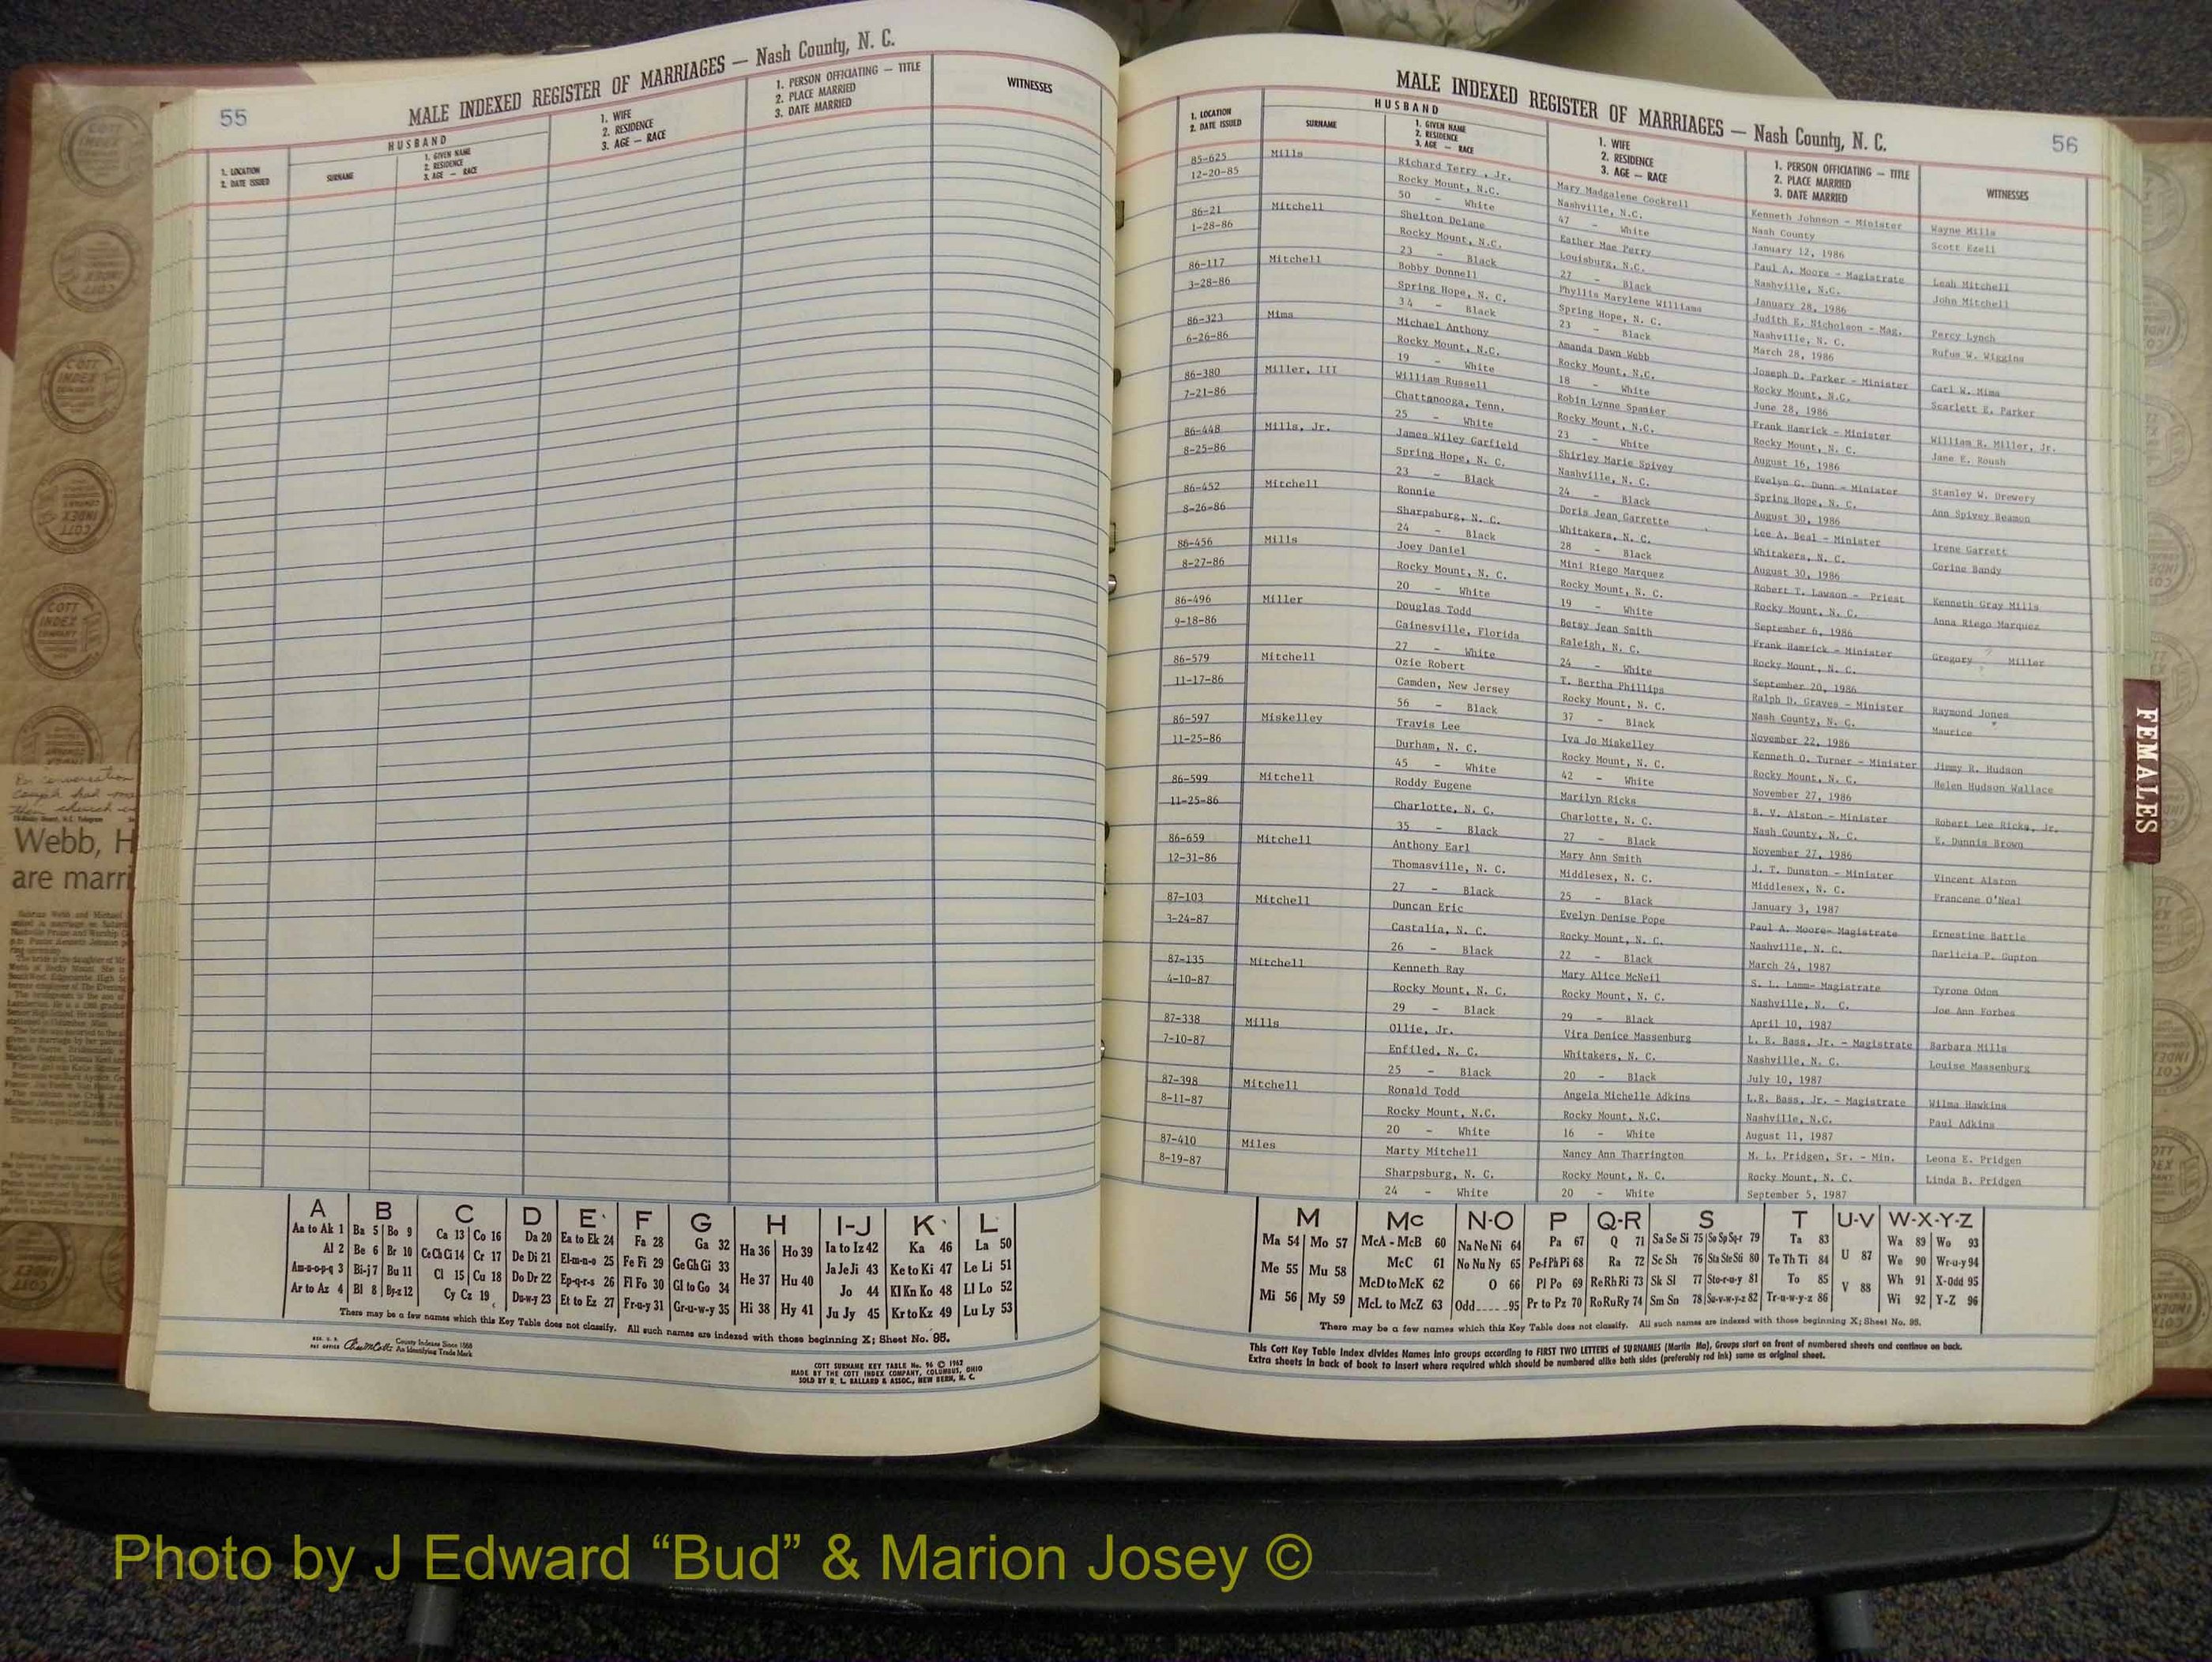 55
MALE INDEXED REGISTER OF MARRIAGES — Nash County, N. C.
HUSBAND
1. LOCATION
2. DATE ISSUED
SURNAME
1. GIVEN NAME
2. RESIDENCE
3. AGE — RACE
1. WIFE
2. RESIDENCE
3. AGE — RACE
1. PERSON OFFICIATING — TITLE
2. PLACE MARRIED
3. DATE MARRIED
WITNESSES
A
Aa to Ak 1
Al 2
Am-n-o-p-q 3
Ar to Az 4
B
Ba 5 Bo 9
Be 6 Br 10
Bi-j 7 Bu 11
Bl 8 By-z 12
C
Ca 13 Co 16
Ce Ch Ci 14 Cr 17
Cl 15 Cu 18
Cy Cz 19
D
Da 20
De Di 21
Do Dr 22
Du-w-y 23
E
Ea to Ek 24
El-m-n-o 25
Ep-q-r-s 26
Et to Ez 27
F
Fa 28
Fe Fi 29
Fl Fo 30
Fr-u-y 31
G
Ga 32
Ge Gh Gi 33
Gl to Go 34
Gr-u-w-y 35
H
Ha 36 Ho 39
He 37 Hu 40
Hi 38 Hy 41
I-J
Ia to Iz 42
Ja Je Ji 43
Jo 44
Ju Jy 45
K
Ka 46
Ke to Ki 47
Kl Kn Ko 48
Kr to Kz 49
L
La 50
Le Li 51
Ll Lo 52
Lu Ly 53
There may be a few names which this Key Table does not classify. All such names are indexed with those beginning X; Sheet No. 95.
County Indexes Since 1888
An Identifying Trade Mark
COTT SURNAME KEY TABLE No. 96 © 1962
MADE BY THE COTT INDEX COMPANY, COLUMBUS, OHIO
SOLD BY R. L. BALLARD & ASSOC., NEW BERN, N. C.
MALE INDEXED REGISTER OF MARRIAGES — Nash County, N. C.
56
HUSBAND
1. LOCATION
2. DATE ISSUED
SURNAME
1. GIVEN NAME
2. RESIDENCE
3. AGE — RACE
1. WIFE
2. RESIDENCE
3. AGE — RACE
1. PERSON OFFICIATING — TITLE
2. PLACE MARRIED
3. DATE MARRIED
WITNESSES
85-625 Mills Richard Terry, Jr. Mary Madgalene Cockrell Kenneth Johnson - Minister Wayne Mills
12-20-85 Rocky Mount, N.C. Nashville, N.C. Nash County Scott Ezell
50 - White 47 - White January 12, 1986
86-21 Mitchell Shelton Delane Eather Mae Perry Paul A. Moore - Magistrate Leah Mitchell
1-28-86 Rocky Mount, N.C. Louisburg, N.C. Nashville, N.C. John Mitchell
23 - Black 27 - Black January 28, 1986
86-117 Mitchell Bobby Donnell Phyllis Marylene Williams Judith E. Nicholson - Mag. Percy Lynch
3-28-86 Spring Hope, N. C. Spring Hope, N. C. Nashville, N. C. Rufus W. Wiggins
34 - Black 23 - Black March 28, 1986
86-323 Mims Michael Anthony Amanda Dawn Webb Joseph D. Parker - Minister Carl W. Mims
6-26-86 Rocky Mount, N.C. Rocky Mount, N.C. Rocky Mount, N.C. Scarlett E. Parker
19 - White 18 - White June 28, 1986
86-380 Miller, III William Russell Robin Lynne Spanier Frank Hamrick - Minister William R. Miller, Jr.
7-21-86 Chattanooga, Tenn. Rocky Mount, N.C. Rocky Mount, N. C. Jane E. Roush
25 - White 23 - White August 16, 1986
86-448 Mills, Jr. James Wiley Garfield Shirley Marie Spivey Evelyn G. Dunn - Minister Stanley W. Drewery
8-25-86 Spring Hope, N. C. Nashville, N. C. Spring Hope, N. C. Ann Spivey Beamon
23 - Black 24 - Black August 30, 1986
86-452 Mitchell Ronnie Doris Jean Garrette Lee A. Beal - Minister Irene Garrett
8-26-86 Sharpsburg, N. C. Whitakers, N. C. Whitakers, N. C. Corine Bandy
24 - Black 28 - Black August 30, 1986
86-456 Mills Joey Daniel Mini Riego Marquez Robert T. Lawson - Priest Kenneth Gray Mills
8-27-86 Rocky Mount, N. C. Rocky Mount, N. C. Rocky Mount, N. C. Anna Riego Marquez
20 - White 19 - White September 6, 1986
86-496 Miller Douglas Todd Betsy Jean Smith Frank Hamrick - Minister Gregory Miller
9-18-86 Gainesville, Florida Raleigh, N. C. Rocky Mount, N. C.
27 - White 24 - White September 20, 1986
86-579 Mitchell Ozie Robert T. Bertha Phillips Ralph D. Graves - Minister Raymond Jones
11-17-86 Camden, New Jersey Rocky Mount, N. C. Nash County, N. C. Maurice
56 - Black 37 - Black November 22, 1986
86-597 Miskelley Travis Lee Iva Jo Miskelley Kenneth O. Turner - Minister Jimmy R. Hudson
11-25-86 Durham, N. C. Rocky Mount, N. C. Rocky Mount, N. C. Helen Hudson Wallace
45 - White 42 - White November 27, 1986
86-599 Mitchell Roddy Eugene Marilyn Ricks B. V. Alston - Minister Robert Lee Ricks, Jr.
11-25-86 Charlotte, N. C. Charlotte, N. C. Nash County, N. C. E. Dannis Brown
35 - Black 27 - Black November 27, 1986
86-659 Mitchell Anthony Earl Mary Ann Smith J. T. Dunston - Minister Vincent Alston
12-31-86 Thomasville, N. C. Middlesex, N. C. Middlesex, N. C. Francene O'Neal
27 - Black 25 - Black January 3, 1987
87-103 Mitchell Duncan Eric Evelyn Denise Pope Paul A. Moore- Magistrate Ernestine Battle
3-24-87 Castalia, N. C. Rocky Mount, N. C. Nashville, N. C. Darlicia P. Gupton
26 - Black 22 - Black March 24, 1987
87-135 Mitchell Kenneth Ray Mary Alice McNeil S. L. Lamm- Magistrate Tyrone Odom
4-10-87 Rocky Mount, N. C. Rocky Mount, N. C. Nashville, N. C. Joe Ann Forbes
29 - Black 29 - Black April 10, 1987
87-338 Mills Ollie, Jr. Vira Denice Massenburg L. R. Bass, Jr. - Magistrate Barbara Mills
7-10-87 Enfiled, N. C. Whitakers, N. C. Nashville, N. C. Louise Massenburg
25 - Black 20 - Black July 10, 1987
87-398 Mitchell Ronald Todd Angela Michelle Adkins L.R. Bass, Jr. - Magistrate Wilma Hawkins
8-11-87 Rocky Mount, N.C. Rocky Mount, N.C. Nashville, N.C. Paul Adkins
20 - White 16 - White August 11, 1987
87-410 Miles Marty Mitchell Nancy Ann Tharrington M. L. Pridgen, Sr. - Min. Leona E. Pridgen
8-19-87 Sharpsburg, N. C. Rocky Mount, N. C. Rocky Mount, N. C. Linda B. Pridgen
24 - White 20 - White September 5, 1987
M
Ma 54 Mo 57
Me 55 Mu 58
Mi 56 My 59
Mc
McA - McB 60
McC 61
McD to McK 62
McL to McZ 63
N-O
Na Ne Ni 64
No Nu Ny 65
O 66
Odd 95
P
Pa 67
Pe-f Ph Pi 68
Pl Po 69
Pr to Pz 70
Q-R
Q 71
Ra 72
Re Rh Ri 73
Ro Ru Ry 74
S
Sa Se Si 75 So Sp Sq-r 79
Sc Sh 76 Sta Ste Sti 80
Sk Sl 77 Sto-r-u-y 81
Sm Sn 78 Su-v-w-y-z 82
T
Ta 83
Te Th Ti 84
To 85
Tr-u-w-y-z 86
U-V
U 87
V 88
W-X-Y-Z
Wa 89 Wo 93
We 90 Wr-u-y 94
Wh 91 X-Odd 95
Wi 92 Y-Z 96
There may be a few names which this Key Table does not classify. All such names are indexed with those beginning X; Sheet No. 95.
This Cott Key Table Index divides Names into groups according to FIRST TWO LETTERS of SURNAMES (Martin Ma), Groups start on front of numbered sheets and continue on back.
Extra sheets in back of book to insert where required which should be numbered alike both sides (preferably red ink) same as original sheet.
FEMALES
Webb, H
are marri
Photo by J Edward “Bud” & Marion Josey ©